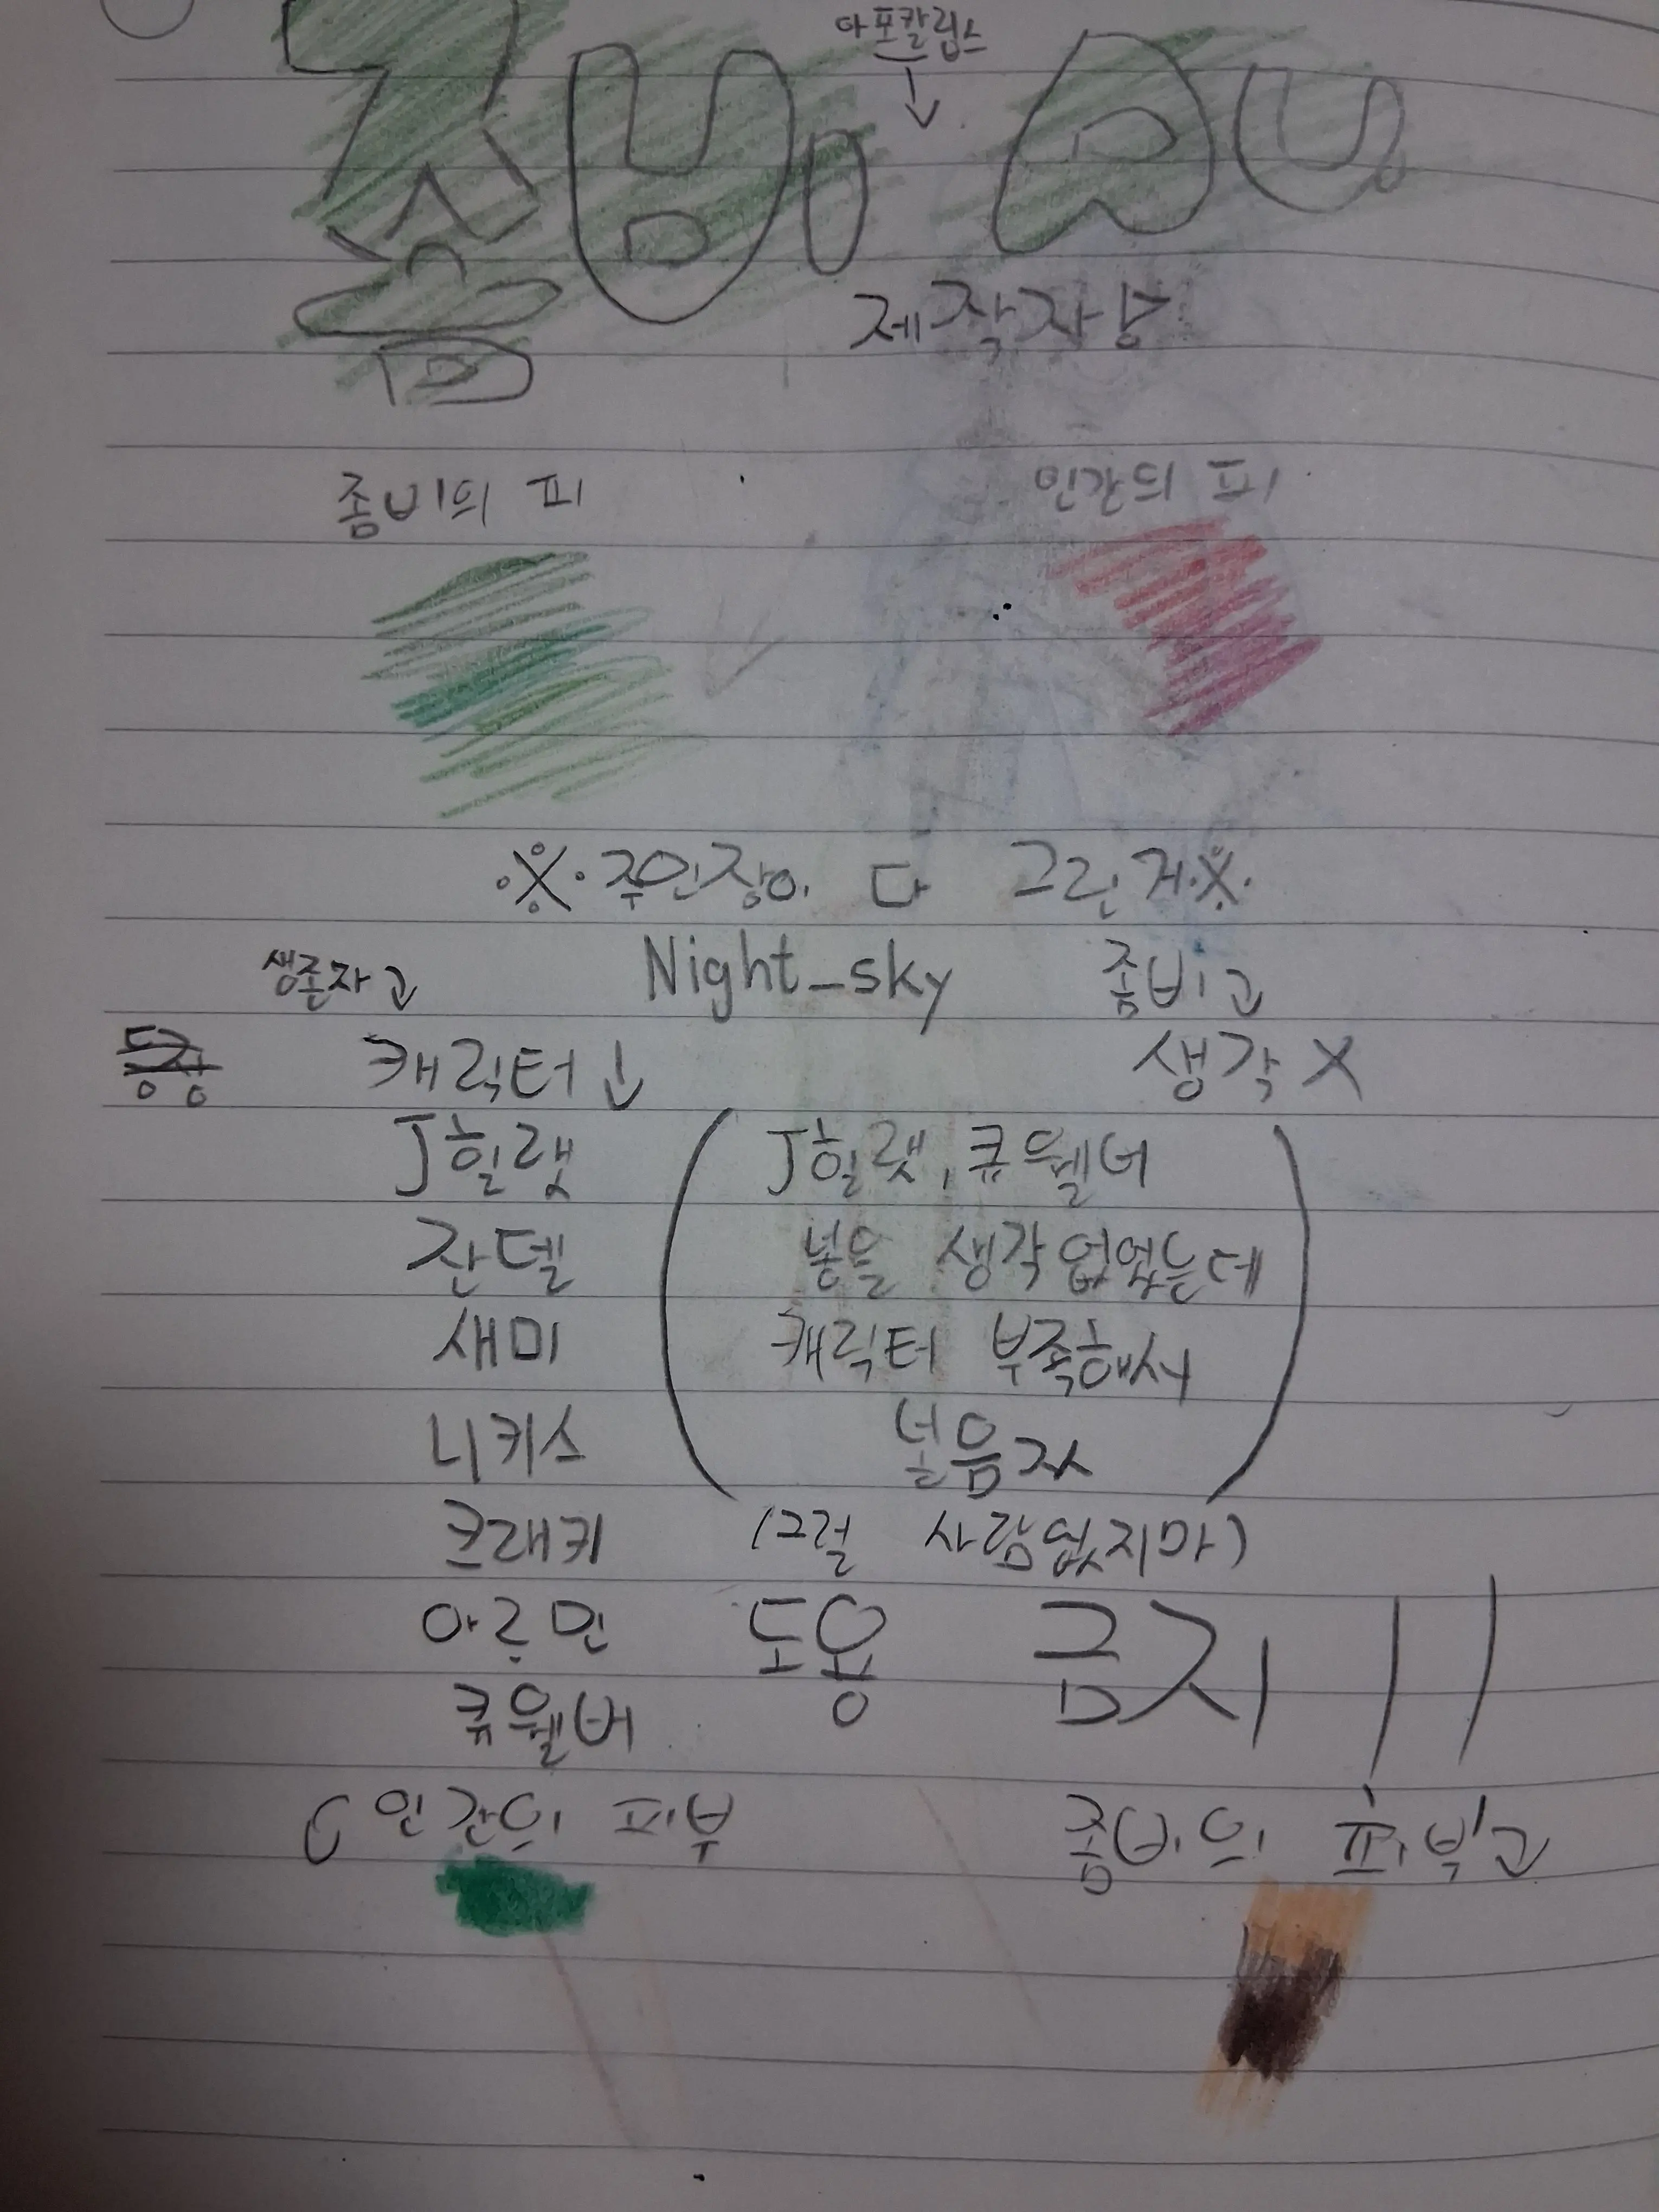 아포칼립스
↓
좀비 AU
제작자 ▷
좀비의 피 인간의 피
※주인장이 다 그린거※
생존자고 Night_sky 좀비고
등장 캐릭터↓ 생각X
J힐랫 (J힐랫, 큐웰버
잔델 넣을 생각없었는데
새미 캐릭터 부족해서
니키스 넣음ㅈㅅ)
크래키 (그럴 사람없지마)
아르민 도용 금지!!
큐웰버
인간의 피부 좀비의 피부고